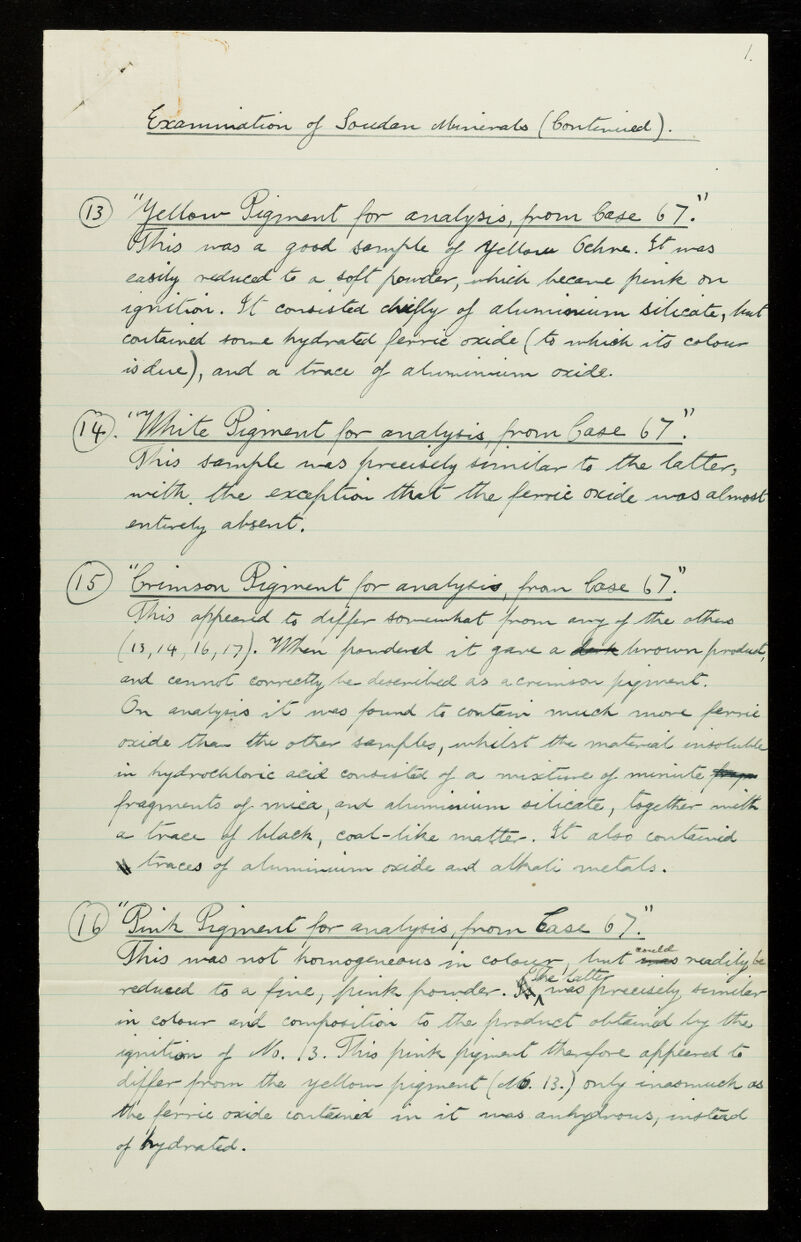 1.
Examination of Soudan Minerals (Continued).
(13) "Yellow Pigment for analysis, from Case 67."
This was a good sample of Yellow Ochre. It was
easily reduced to a soft powder, which became pink on
ignition. It consisted chiefly of aluminium silicate, but
contained some hydrated ferric oxide (to which its colour
is due), and a trace of aluminium oxide.
(14). "White Pigment for analysis, from Case 67".
This sample was precisely similar to the latter,
with the exception that the ferric oxide was almost
entirely absent.
(15) "Crimson Pigment for analysis, from Case 67."
This appeared to differ somewhat from any of the others
(13, 14, 16, 17). When powdered it gave a dark brown product,
and cannot correctly be described as a crimson pigment.
On analysis it was found to contain much more ferric
oxide than the other samples, whilst the material insoluble
in hydrochloric acid consisted of a mixture of minute
fragments of mica, and aluminium silicate, together with
a trace of black, coal-like matter. It also contained
traces of aluminium oxide and alkali metals.
(16) "Pink Pigment for analysis, from Case 67."
This was not homogeneous in colour, but was could readily be
reduced to a fine, pink powder. The latter was precisely similar
in colour and composition to the product obtained by the
ignition of No. 13. This pink pigment therefore appeared to
differ from the yellow pigment (No. 13.) only inasmuch as
the ferric oxide contained in it was anhydrous, instead
of hydrated.